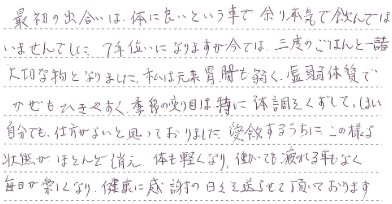 最初の出合いは、体に良いという事で余り本気で飲んでは
いませんでした。7年位いになりますが今では、三度のごはんと一諸
大切な物となりました。私は元来胃腸も弱く、虚弱体質で
かぜもひきやすく、季節の変り目は特に体調をくずして、しまい
自分でも、仕方がないと思っておりました。愛飲するうちにこの様な
状態がほとんど消え、体も軽くなり、働いても疲れる事もなく
毎日が楽しくなり、健康に感謝の日々を送らせて頂いております